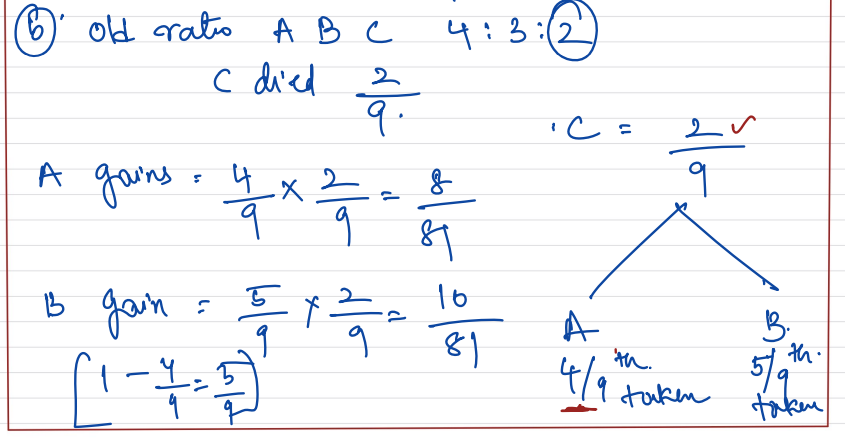 6. Old ratio A B C 4 : 3 : 2
C died 2/9.
C = 2/9 ✓
A gains = 4/9 × 2/9 = 8/81
B gain = 5/9 × 2/9 = 10/81
[1 - 4/9 = 5/9]
A
4/9 th. taken
B.
5/9 th. taken